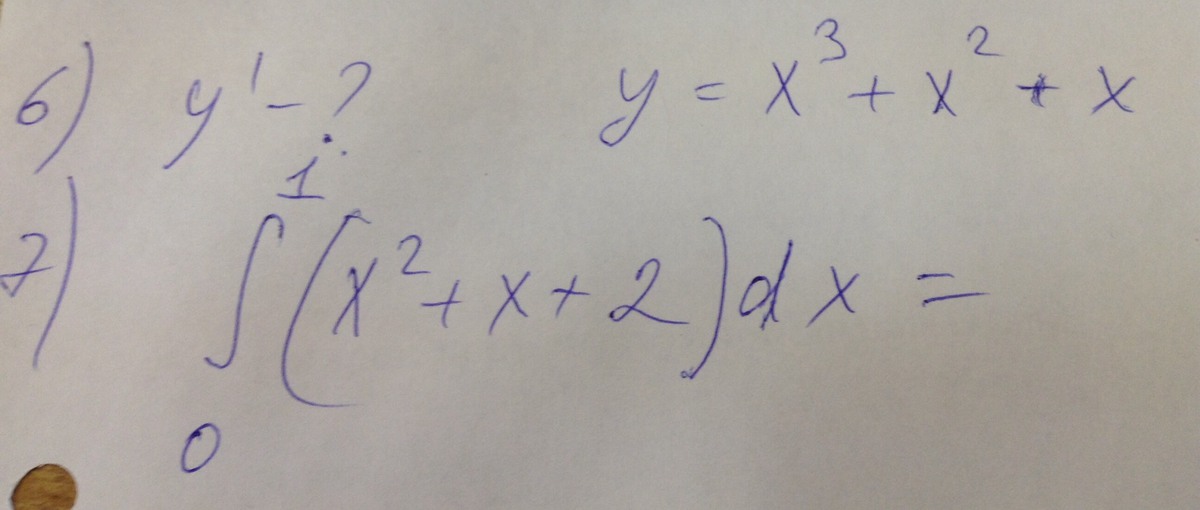 6) y' - ? y = x³ + x² + x
7) ∫₀¹ (x² + x + 2) dx =